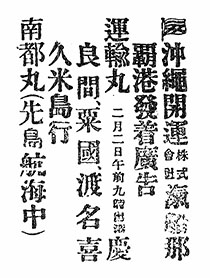 沖繩開運株式會社滊船那
覇港發着廣告
運輸丸二月二日午前九時出帆慶
良間、粟國渡名喜
久米島行
南都丸(先島航海中)